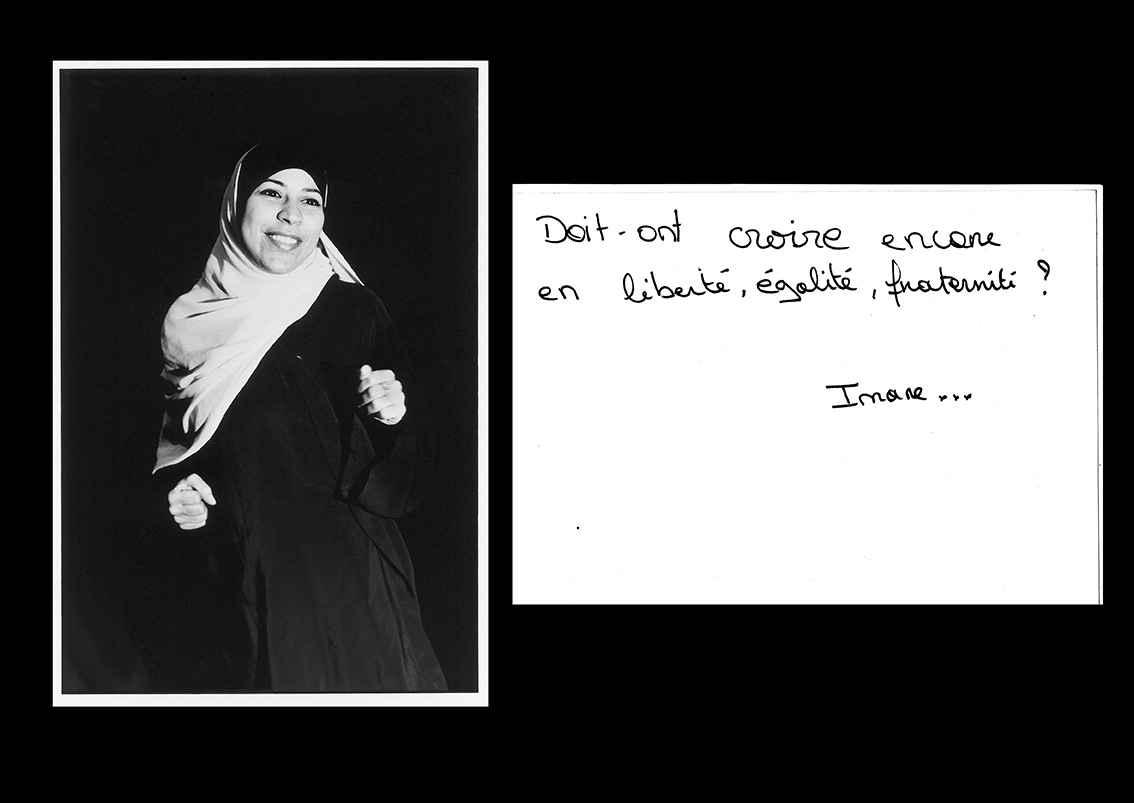 Doit-ont croire encore
en liberté, égalité, fraternité ?
Imane...